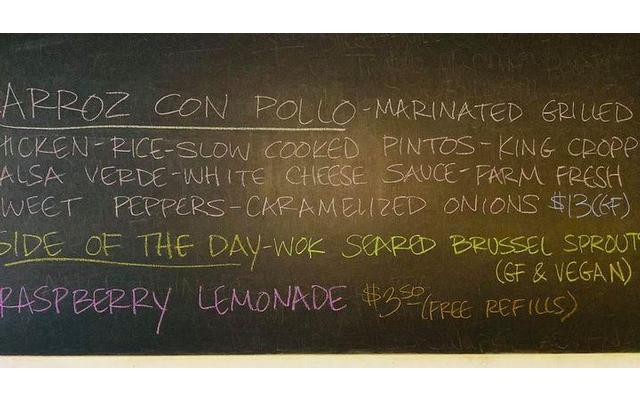 ARROZ CON POLLO-MARINATED GRILLED
HICKEN-RICE-SLOW COOKED PINTOS-KING CROPP
ALSA VERDE-WHITE CHEESE SAUCE-FARM FRESH
WEET PEPPERS-CARAMELIZED ONIONS $13(GF)
SIDE OF THE DAY-WOK SEARED BRUSSEL SPROUT
(GF & VEGAN)
RASPBERRY LEMONADE $3.50 (FREE REFILLS)